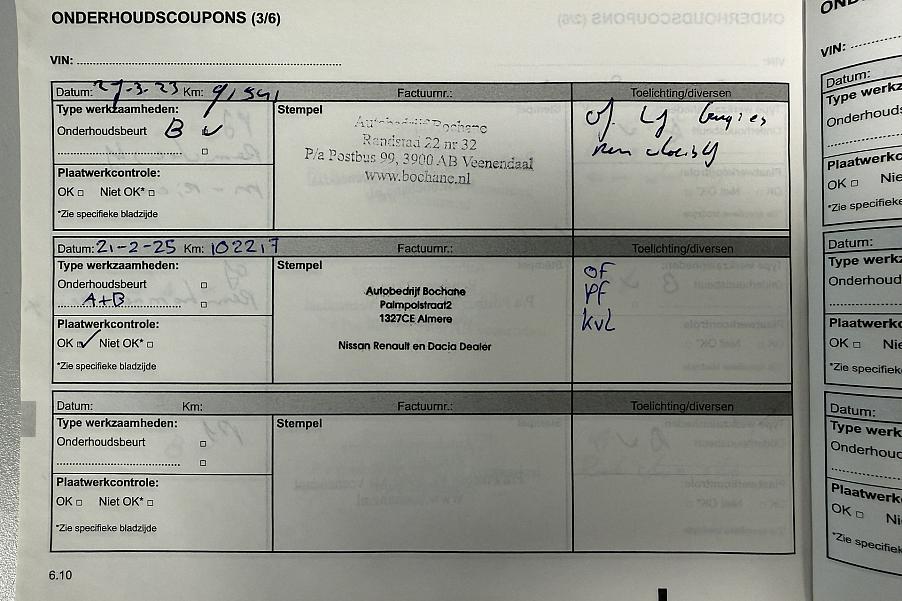 ONDERHOUDSCOUPONS (3/6)
VIN:
Datum: 27-3-23 Km: 91541 Factuurnr.: Toelichting/diversen
Type werkzaamheden:
Onderhoudsbeurt B
Stempel
Autobedrijf Bochane
Randstad 22 nr 32
P/a Postbus 99, 3900 AB Veenendaal
www.bochane.nl
of Lf bougies
rem vloeistof
Plaatwerkcontrole:
OK Niet OK*
*Zie specifieke bladzijde
Datum: 21-2-25 Km: 102217 Factuurnr.: Toelichting/diversen
Type werkzaamheden:
Onderhoudsbeurt
A+B
Stempel
Autobedrijf Bochane
Palmpolstraat2
1327CE Almere
Nissan Renault en Dacia Dealer
OF
PF
KVL
Plaatwerkcontrole:
OK Niet OK*
*Zie specifieke bladzijde
Datum: Km: Factuurnr.: Toelichting/diversen
Type werkzaamheden:
Onderhoudsbeurt
Stempel
Plaatwerkcontrole:
OK Niet OK*
*Zie specifieke bladzijde
6.10
VIN:
Datum:
Type
Plaatwerkco
OK Nie
*Zie specifieke
Datum:
Type
Onderhoud
Plaatwerkc
OK Nie
*Zie specifiek
Datum:
Type werk
Onderhou
Plaatwerk
OK Ni
*Zie specif